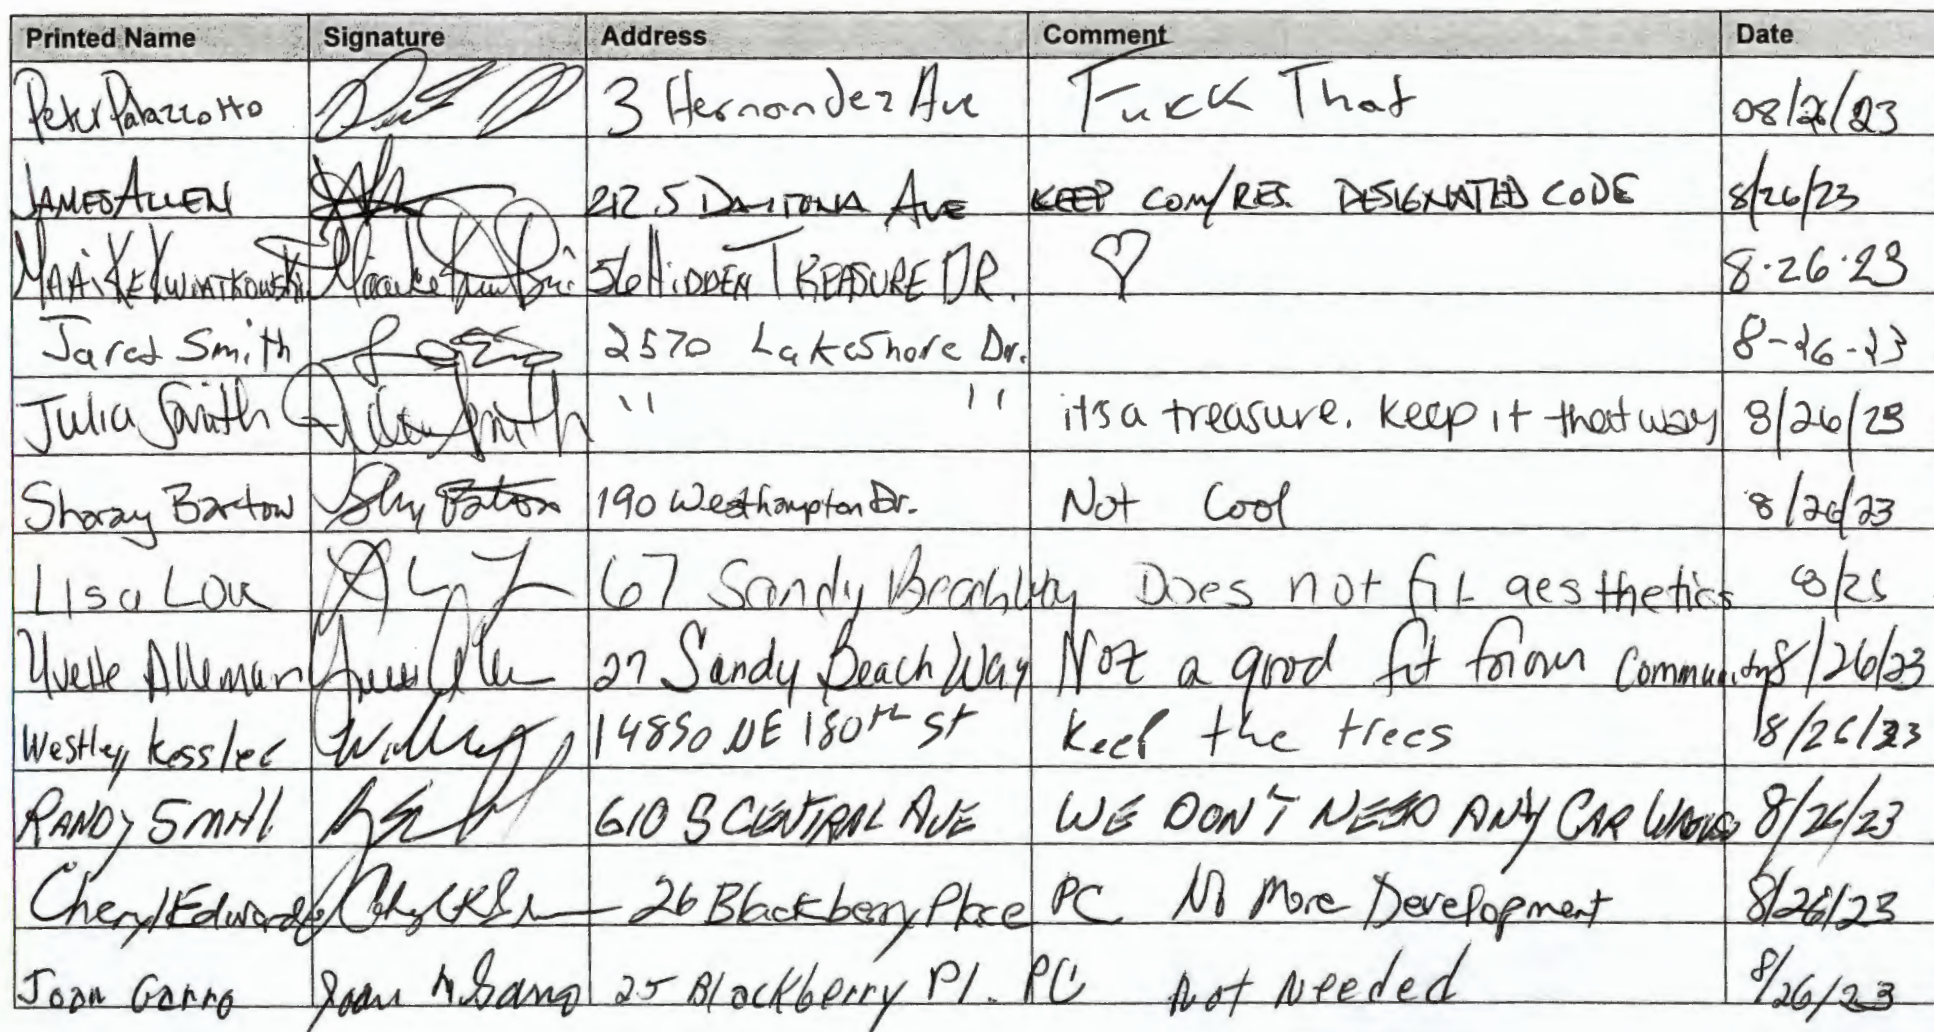 Printed Name Signature Address Comment Date
Peter Palazzotto 3 Hernandez Ave Fuck That 08/26/23
JAMES ALLEN 212 S DAYTONA AVE KEEP COM/RES. DESIGNATED CODE 8/26/23
MAAIKE KWIATKOWSKI 56 HIDDEN TREASURE DR. ♡ 8·26·23
Jared Smith 2570 Lakeshore Dr. 8-26-23
Julia Smith Julia Smith " " its a treasure. keep it that way 8/26/23
Sharay Bartow 190 Westhampton Dr. Not Cool 8/26/23
Lisa Lou 67 Sandy Beach Way Does not fit aesthetics 8/25
Yvette Alleman 27 Sandy Beach Way Not a good fit for our community 8/26/23
Westley Kessler 14850 NE 180th St Keep the trees 8/26/23
RANDY SMITH 610 S CENTRAL AVE WE DON'T NEED ANY CAR 8/26/23
Cheryl Edwards 26 Blackberry Place PC No More Development 8/26/23
Joan Garro Joan M Garro 25 Blackberry Pl. PC Not Needed 8/26/23